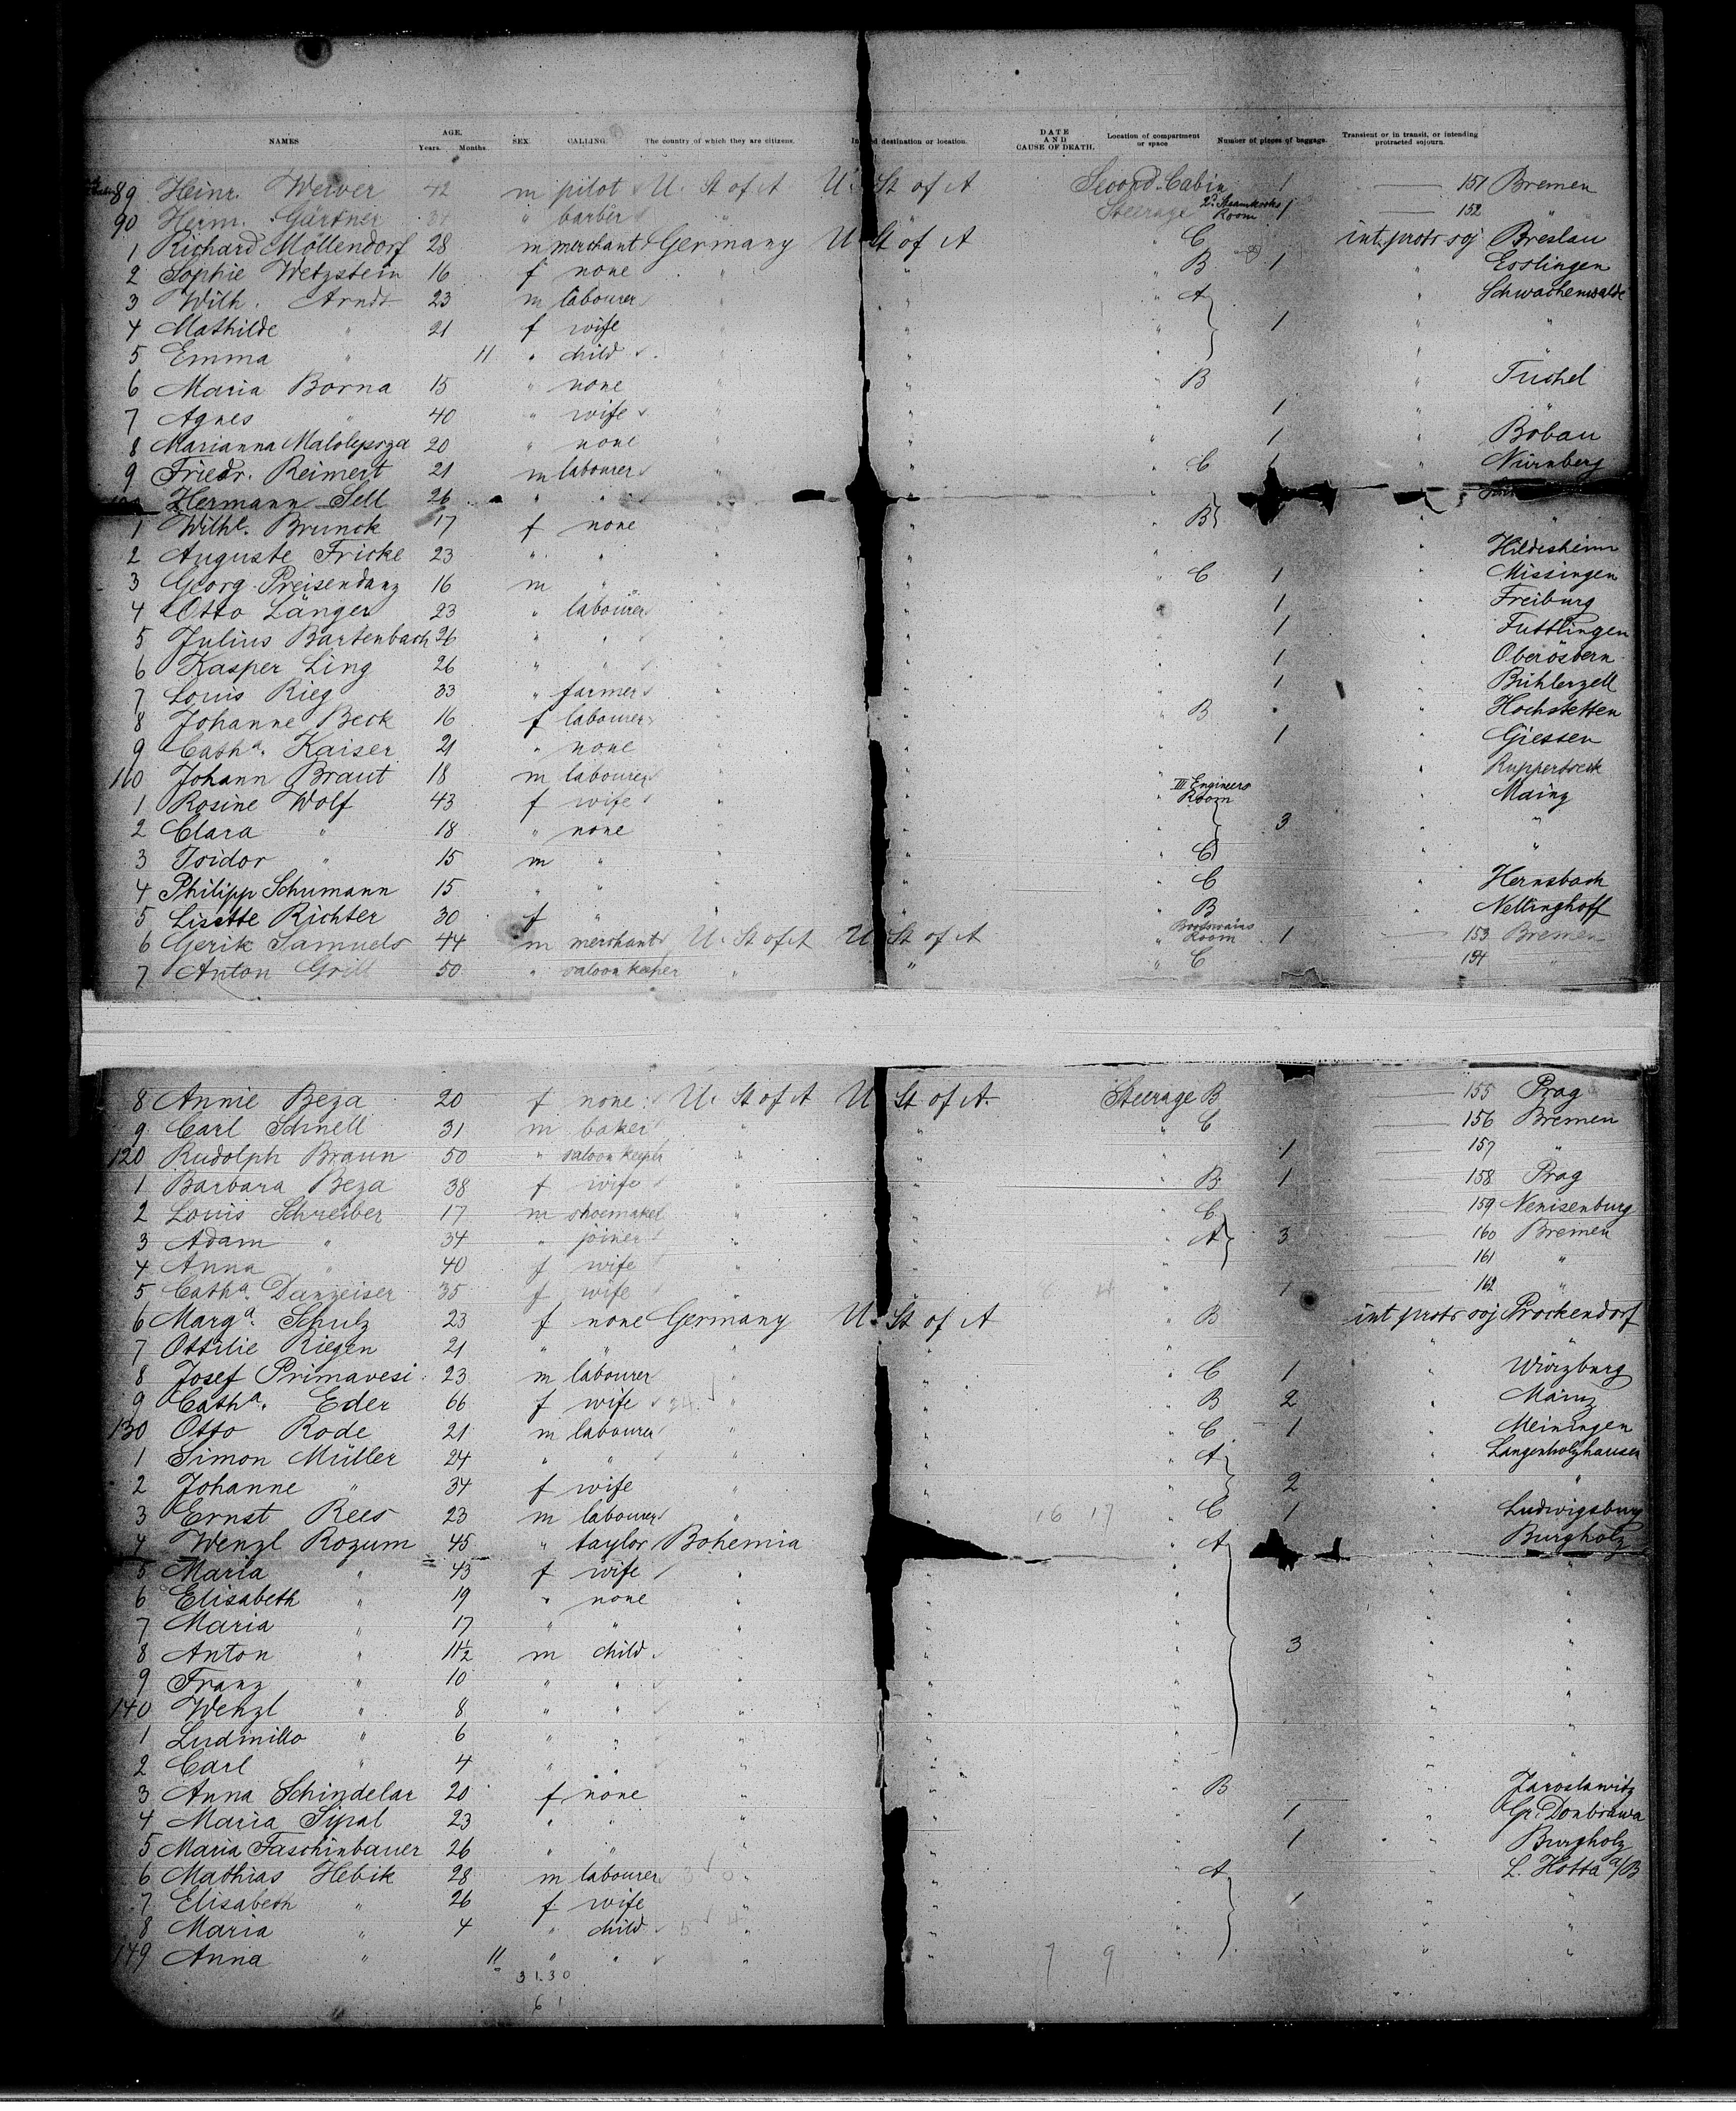 NAMES AGE. Years. Months. SEX. CALLING. The country of which they are citizens. destination or location. DATE AND CAUSE OF DEATH. Location of compartment or space Number of pieces of baggage. Transient or in transit, or intending protracted sojourn.
89 Heinr. Weiver 42 m pilot U. St of A U. St of A Second Cabin 1 151 Bremen
90 Herm. Gärtner " barber " " Steerage Room 1 152 " "
1 Richard Möllendorf 28 m merchant Germany U St of A " C int. protr soj Breslau
2 Sophie Wetzstein 16 f none " " " B 1 " Esslingen
3 Wilh. Arndt 23 m labourer " " " A " Schwachenwalde
4 Mathilde " 21 f wife " " " 1 " "
5 Emma " 11 " child " " " " "
6 Maria Borna 15 " none " " " B " Tuchel
7 Agnes " 40 " wife " " " 1 " "
8 Marianna Malolepsza 20 " none " " " 1 " Bobau
9 Friedr. Reimert 21 m labourer " " " C 1 " Nürnberg
Hermann Sell 26 " " " "
1 Wilhe. Brunck 17 f none " " " B " "
2 Auguste Fricke 23 " " " " " " Hildesheim
3 Georg Preisendanz 16 m " " " " C 1 " Missingen
4 Otto Länger 23 " labourer " " 1 " Freiburg
5 Julius Bartenbach 26 " " " " " 1 " Tuttlingen
6 Kasper Ling 26 " " " " " 1 " Oberösbern
7 Louis Rieg 33 " farmer " " " 1 " Bühlerzell
8 Johanne Beck 16 f labourer " " " B " Hochstetten
9 Catha. Kaiser 21 " none " " " 1 " Giessen
110 Johann Braut 18 m labourer " " " " Ruppertseck
1 Rosine Wolf 43 f wife " " " III Engineers Room " Mainz
2 Clara " 18 " none " " " 3 " "
3 Isidor " 15 m " " " " C " "
4 Philipp Schumann 15 " " " " C " Hernsbach
5 Lisette Richter 30 f " " " B " Nellinghoff
6 Gerik Samuels 44 m merchant U. St of A U St of A " Bootswains Room 1 153 Bremen
7 Anton Grill 50 " saloon keeper " " " C 154 "
8 Annie Beza 20 f none U. St of A U St of A. Steerage B 155 Prag
9 Carl Schnell 31 m baker " " " C 156 Bremen
120 Rudolph Braun 50 " saloon keeper " " " 1 157 "
1 Barbara Beza 38 f wife " " " B 1 158 Prag
2 Louis Schreiber 17 m shoemaker " " " C 159 Nenisenburg
3 Adam " 34 " joiner " " " A 3 160 Bremen
4 Anna " 40 f wife " " " 161 "
5 Catha. Danzeiser 35 f wife " " " 1 162 "
6 Marga. Schulz 23 f none Germany U. St of A " B int protr soj Prockendorf
7 Ottilie Riegen 21 " " " " " " "
8 Josef Primavesi 23 m labourer " " " C 1 " Würzburg
9 Catha. Eder 66 f wife " " " B 2 " Mainz
130 Otto Rode 21 m labourer " " " C 1 " Meiningen
1 Simon Müller 24 " " " " " A " Langenholzhausen
2 Johanne " 34 f wife " " " 2 " "
3 Ernst Rees 23 m labourer " " 16 17 " C 1 " Ludwigsburg
4 Wenzl Rozum 45 " taylor Bohemia " A " Burgholz
5 Maria " 43 f wife " " " " "
6 Elisabeth " 19 " none " " " " "
7 Maria " 17 " " " " " " "
8 Anton " 11½ m child " " " 3 " "
9 Franz " 10 " " " " " " "
140 Wenzl " 8 " " " " " " "
1 Ludmilla " 6 " " " " " " "
2 Carl " 4 " " " " " " "
3 Anna Schindelar 20 f none " " " B " Jaroslawitz
4 Maria Sipal 23 " " " " " 1 " Gr. Dombrawa
5 Maria Faschinbauer 26 " " " " " 1 " Burgholz
6 Mathias Hebik 28 m labourer " " " A " L. Hotta a/B
7 Elisabeth " 26 f wife " " " 1 " "
8 Maria " 4 " child " " " " "
149 Anna " 11 " " " " 7 9 " " "
31.30
61